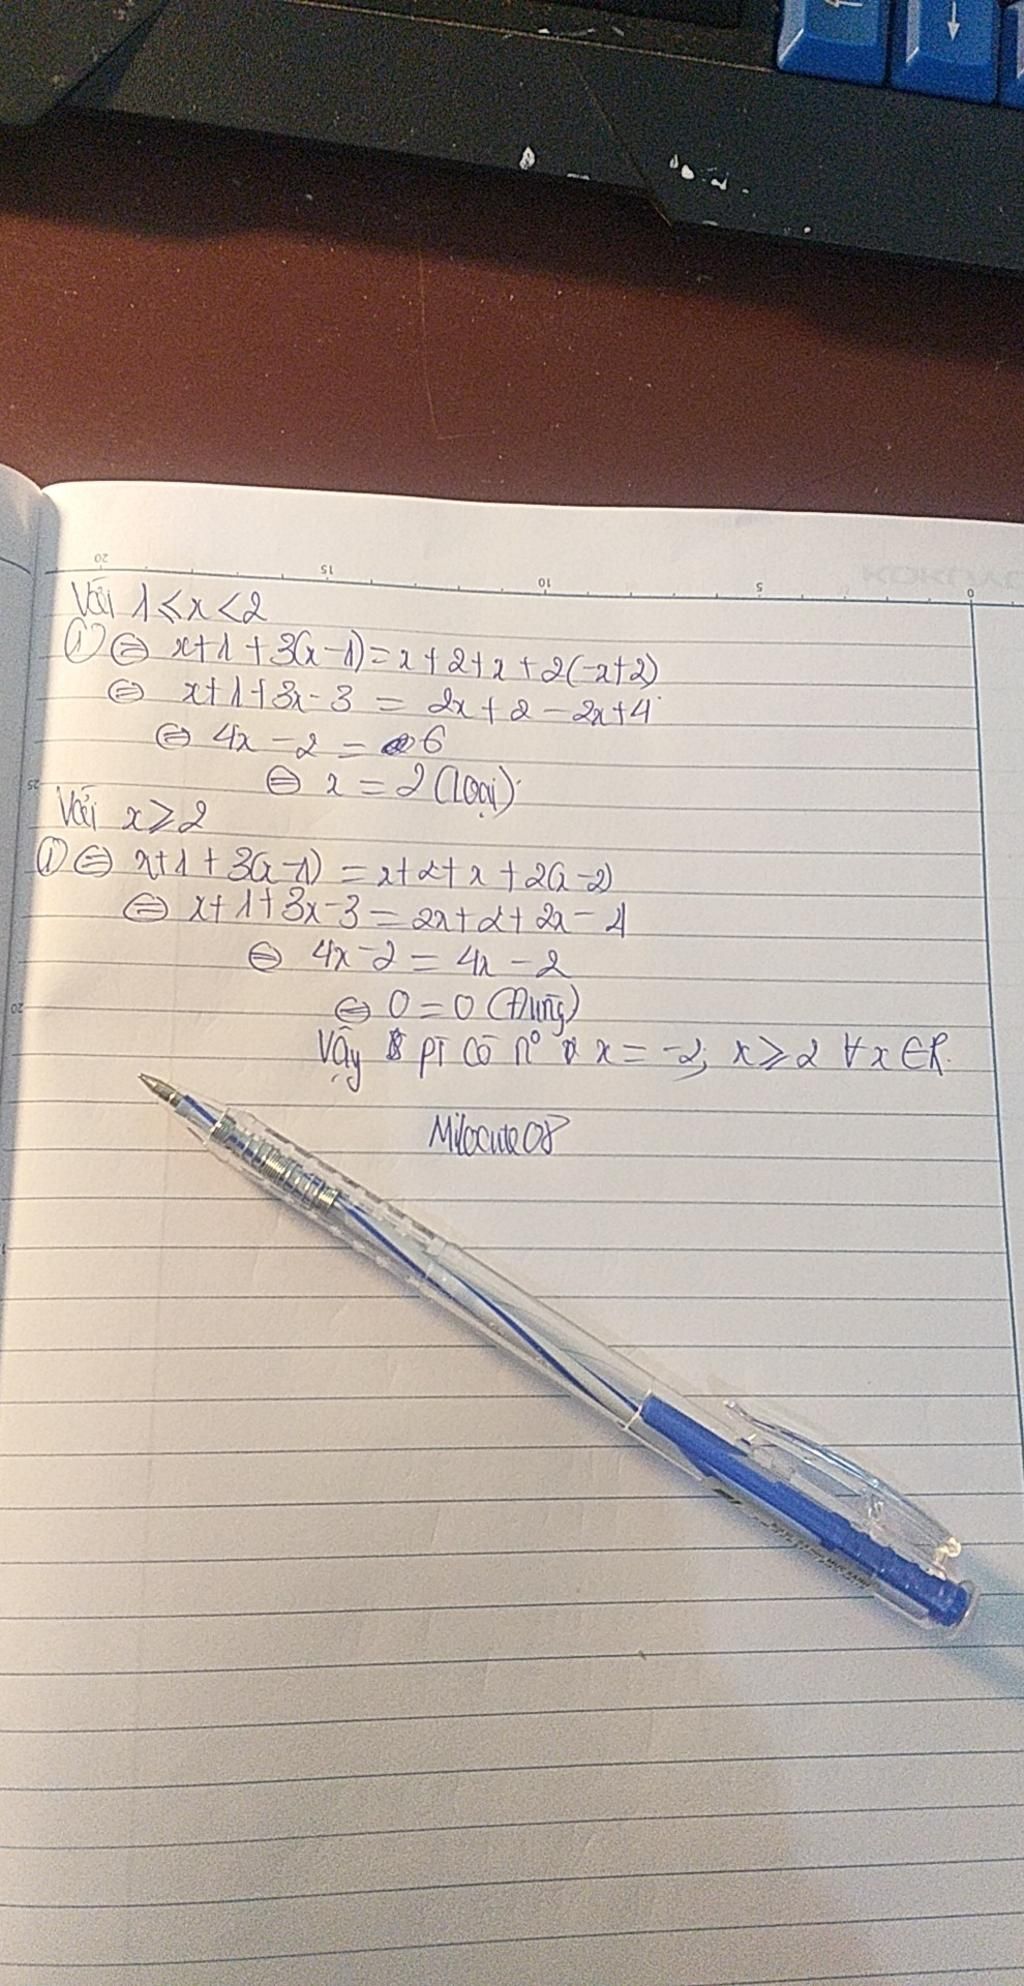 Với 1 ≤ x < 2
① ⇔ x+1+3(x-1)=x+2+x+2(-x+2)
⇔ x+1+3x-3 = 2x+2-2x+4
⇔ 4x-2 = 6
⇔ x = 2 (loại)
Với x ≥ 2
① ⇔ x+1+3(x-1) = x+2+x+2(x-2)
⇔ x+1+3x-3 = 2x+2+2x-4
⇔ 4x-2 = 4x-2
⇔ 0=0 (Đúng)
Vậy pt có n° x = -2, x ≥ 2 ∀x ∈ R.
Milocute08